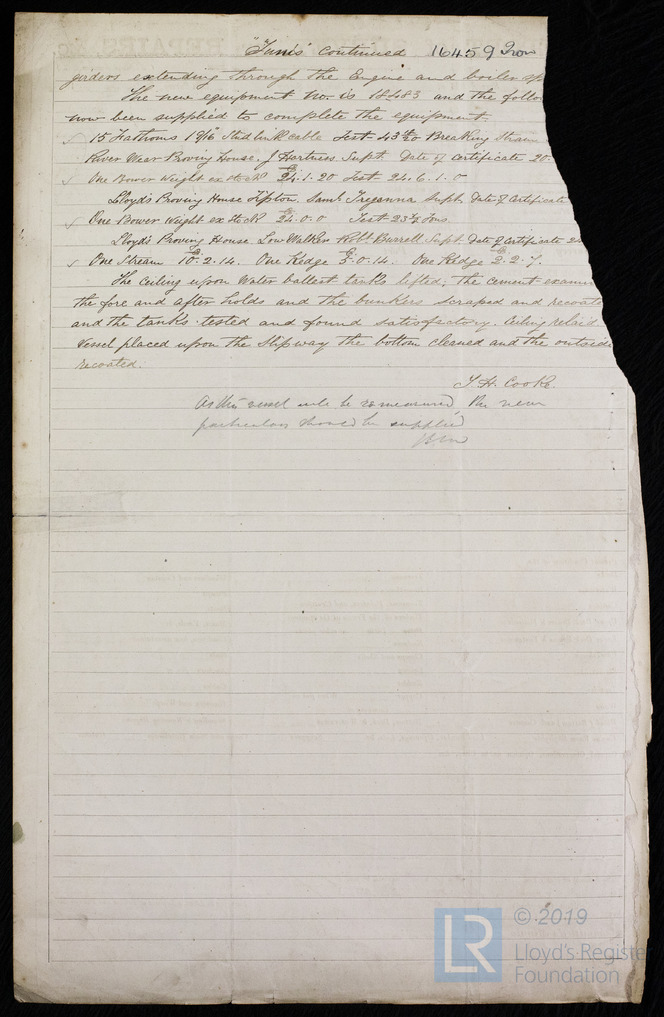 "Tunis" continued 16459 Iron
girders extending through the Engine and boiler sp
The new equipment No. is 18483 and the follo
now been supplied to complete the equipment.
15 Fathoms 1 9/16 Stud link cable Test 43 Breaking Strain
River Wear Proving House. J. Hartness. Supt. Date of Certificate 20.
One Bower Weight ex stock 24.1.20 Test 24.6.1.0
Lloyd's Proving House Tipton. Saml. Treganna Supt. Date of Certificate
One Bower Weight ex stock 24.0.0 Test 23 Tons.
Lloyd's Proving House. Low Walker Robt. Burrell. Supt. Date of Certificate 24
One Stream 10.2.14. One Kedge 5.0.14. One Kedge 2.2.7.
The Ceiling upon Water ballast tanks lifted; The cement examin
the fore and after holds and the bunkers scraped and recoate
and the tanks tested and found satisfactory. Ceiling relaid.
Vessel placed upon the Slipway the bottom cleaned and the outside
recoated.
T. H. Cooke.
As this vessel will be remeasured the new
particulars should be supplied
© 2019
LR
Lloyd's Register
Foundation